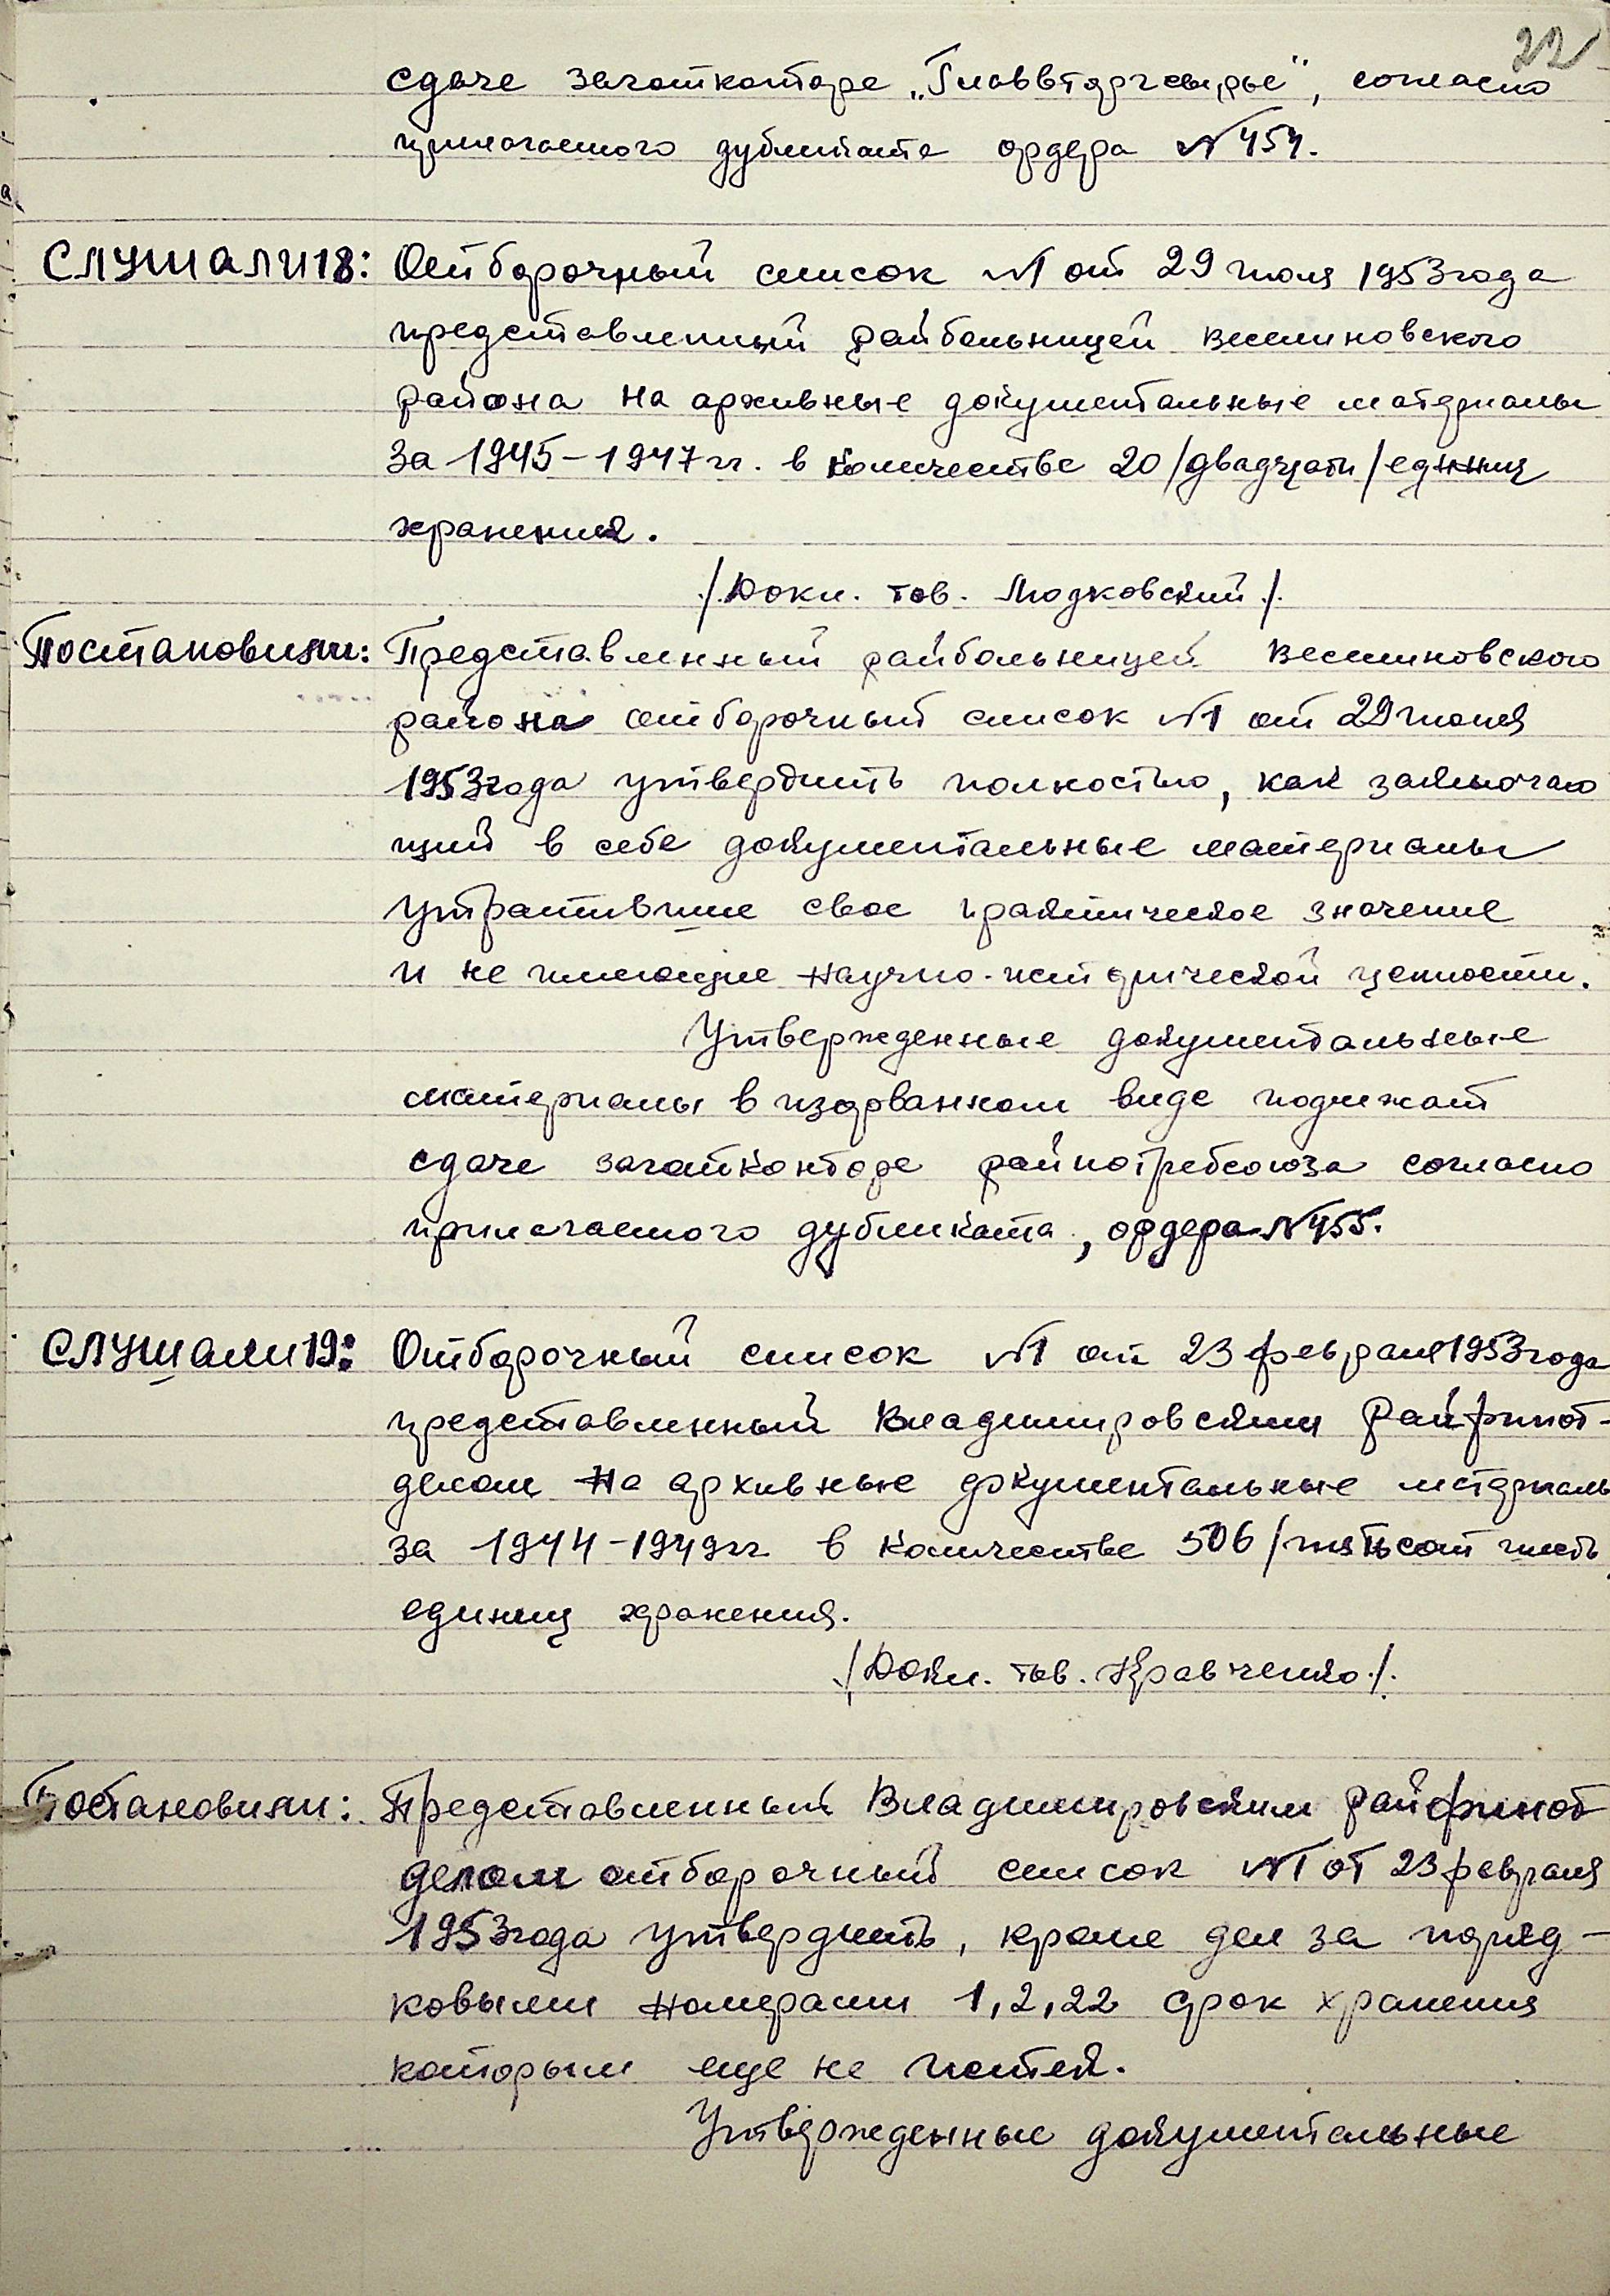 22
сдаче заготконторе „Главвторчсырье", согласно
прилагаемого дубликата ордера №454.
СЛУШАЛИ 18: Отборочный список №1 от 29 июля 1953 года
представленный райбольницей Веселиновского
района на архивные документальные материалы
за 1945-1947 гг. в количестве 20 /двадцати/ единиц
хранения.
/Докл. тов. Людковский/.
Постановили: Представленный райбольницей Веселиновского
района отборочный список №1 от 29 июля
1953 года утвердить полностью, как заключаю
щий в себе документальные материалы
утратившие свое практическое значение
и не имеющие научно-исторической ценности.
Утвержденные документальные
материалы в изорванном виде подлежат
сдаче заготконторе райпотребсоюза согласно
прилагаемого дубликата, ордера №455.
СЛУШАЛИ 19: Отборочный список №1 от 23 февраля 1953 года
представленный Владимировским Райфинот-
делом на архивные документальные материалы
за 1944-1949 гг в количестве 506 /пятьсот шесть
единиц хранения.
/Докл. тов. Кравченко/.
Постановили: Представленный Владимировским райфинот
делом отборочный список №1 от 23 февраля
1953 года утвердить, кроме дел за поряд-
ковыми номерами 1, 2, 22 срок хранения
которым еще не истек.
Утвержденные документальные